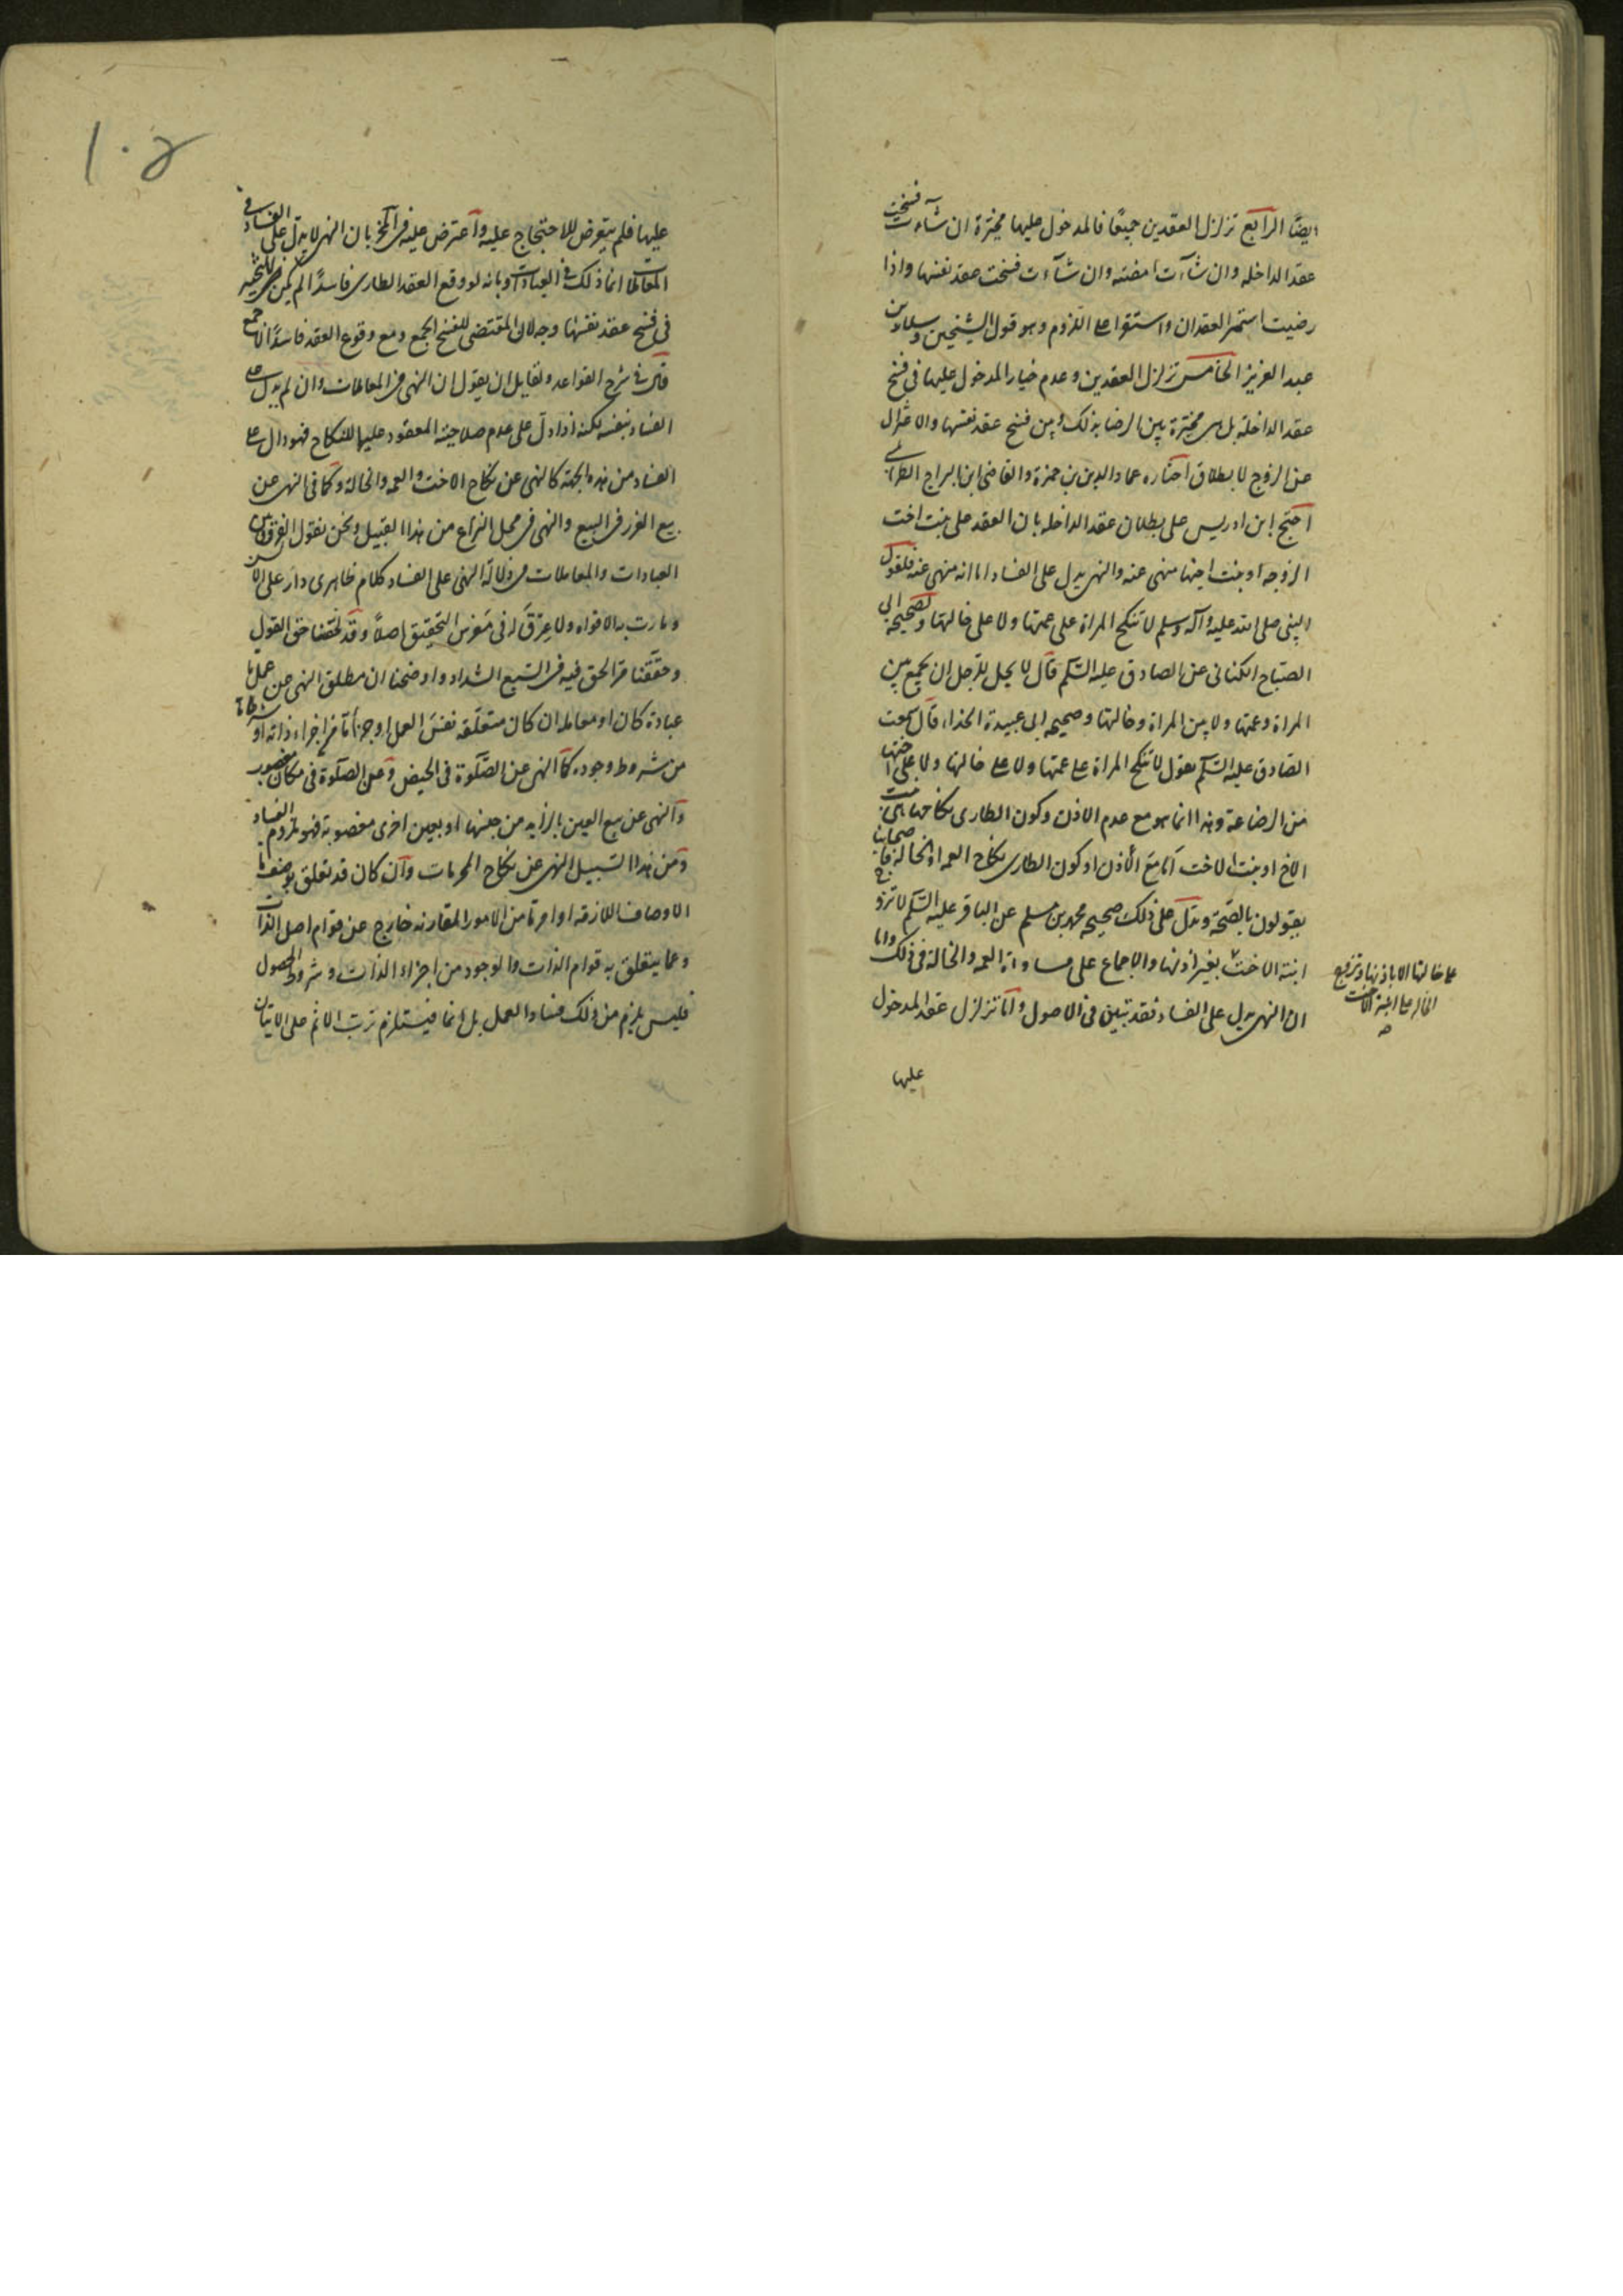 ايضًا الرابع تزلزل العقدين جميعًا فالمدخول عليها مخيّرة ان شآءت فسخت
عقد الداخله وان شآءت امضته وان شآءت فسخت عقد نفسها واذا
رضيت استمر العقدان واستقرا على اللزوم وهو قول الشيخين وسلار بن
عبد العزيز الخامس تزلزل العقدين وعدم خيار المدخول عليها فى فسخ
عقد الداخلة بل هى مخيّرة بين الرضا بذلك وبين فسخ عقد نفسها والاعتزال
عن الزوج لا بطلاق اختاره عماد الدين بن حمزة والقاضى ابن البراج الطرابلسى
احتج ابن ادريس على بطلان عقد الداخله بان العقد على بنت اخت
الزوجه او بنت اخيها منهى عنه والنهى يدل على الفساد اما انه منهى عنه فلقول
النبى صلى الله عليه وآله وسلم لا تنكح المراة على عمتها ولا على خالتها ولصحيحه ابى
الصباح الكنانى عن الصادق عليه السّلم قال لا يحل للرجل ان يجمع بين
المراة وعمتها ولا بين المراة وخالتها وصحيحه ابى عبيدة الحذاء قال سمعت
الصادق عليه السّلم يقول لا تنكح المراة على عمتها ولا على خالتها ولا على اختها
من الرضاعة وهذا انما هو مع عدم الاذن وكون الطارى نكاحها اى بنت
الاخ او بنت الاخت امّا مع الأذن او كون الطارى نكاح العمه او الخاله فاصحابنا
يقولون بالصّحة ويدلّ على ذلك صحيحه محمد بن مسلم عن الباقر عليه السّلم لا تزوج
ابنة الاخت بغير اذنها والاجماع على مساواة العمه والخالة فى ذلك واما
ان النهى يدل على الفساد فقد تبيّن فى الاصول وامّا تزلزل عقد المدخول
عليها
على خالتها الا باذنها وتزوج
الخاله على ابنة الاخت
صح
١٠٥
عليها فلم يتعرض للاحتجاج عليه واعترض عليه فى المخ بان النهى لا يدلّ على الفساد فى
المعاملات انما ذلك فى العبادات وبانه لو وقع العقد الطارى فاسدًا لم يكن للتخيير
فى فسخ عقد نفسها وجه لان المقتضى للفسخ الجمع ومع وقوع العقد فاسدًا لا جمع
قال فى شرح القواعد ولقايل ان يقول ان النهى فى المعاملات وان لم يدل على
الفساد بنفسه لكنه اذا دلّ على عدم صلاحية المعقود عليها للنكاح فهو دال على
الفساد من هذه الجهة كالنهى عن نكاح الاخت والعمه والخالة وكما فى النهى عن
بيع الغرر فى البيع والنهى فى محل النزاع من هذا القبيل ونحن نقول الفرق بين
العبادات والمعاملات فى دلالة النهى على الفساد كلام ظاهرى دار على الالسن
ومارت به الافواه ولا عرق له فى مغرس التحقيق اصلاً وقد لخّصنا حق القول
وحقّقنا مرّ الحق فيه فى السّبع الشداد واوضحنا ان مطلق النهى عن عمل ما
عبادة كان او معاملة ان كان متعلّقه نفس العمل او جزأ مّا من اجزاء ذاته او شرطا ما
من شروط وجوده كالنهى عن الصّلوة فى الحيض وعن الصلوة فى مكان مغصوب
والنهى عن بيع العين بالزايد من جنسها او بعين اخرى مغصوبة فهو ملزوم الفساد
ومن هذا السّبيل النهى عن نكاح المحرمات وان كان قد تعلق بوصف ما
الاوصاف اللازمه او امر ما من الامور المقارنه خارج عن قوام اصل الذات
وعما يتعلق به قوام الذات والوجود من اجزاء الذات وشروط الحصول
فليس يلزم من ذلك فساد العمل بل انما فيستلزم ترتب الاثم على الاتيان